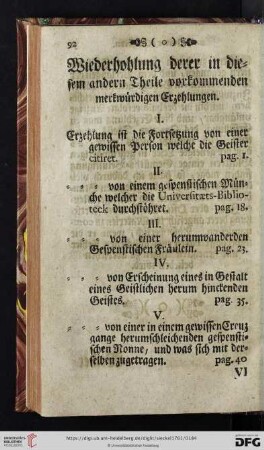 92 ( o )
Wiederhohlung derer in die-
sem andern Theile vorkommenden
merkwürdigen Erzehlungen.
I.
Erzehlung ist die Fortsetzung von einer
gewissen Person welche die Geister
citiret. pag. 1.
II
- - - von einem gespenstischen Mün-
che welcher die Universitæts-Biblio-
teck durchstöhret. pag. 18.
III.
- - - von einer herumwanderden
Gespenstischen Fräulein. pag. 23.
IV.
- - - von Erscheinung eines in Gestalt
eines Geistlichen herum hinckenden
Geistes. pag. 35.
V.
- - - von einer in einem gewissen Creuz
gange herumschleichenden gespensti-
schen Nonne, und was sich mit der-
selben zugetragen. pag. 40
VI
© Universitätsbibliothek Heidelberg
DFG